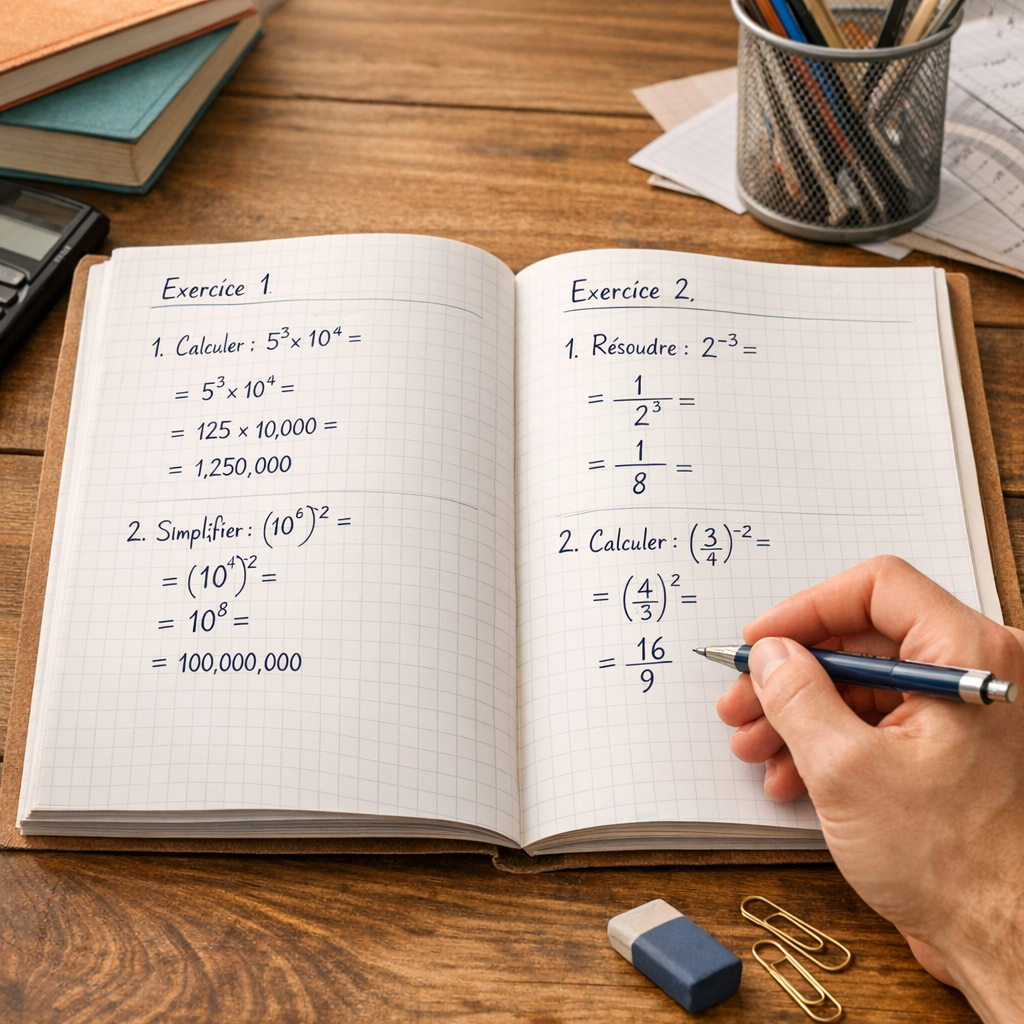 Exercice 1.
1. Calculer : 5³ × 10⁴ =
= 5³ × 10⁴ =
= 125 × 10,000 =
= 1,250,000
2. Simplifier : (10⁶)⁻² =
= (10⁴)⁻² =
= 10⁸ =
= 100,000,000
Exercice 2.
1. Résoudre : 2⁻³ =
= 1/2³ =
= 1/8 =
2. Calculer : (3/4)⁻² =
= (4/3)² =
= 16/9